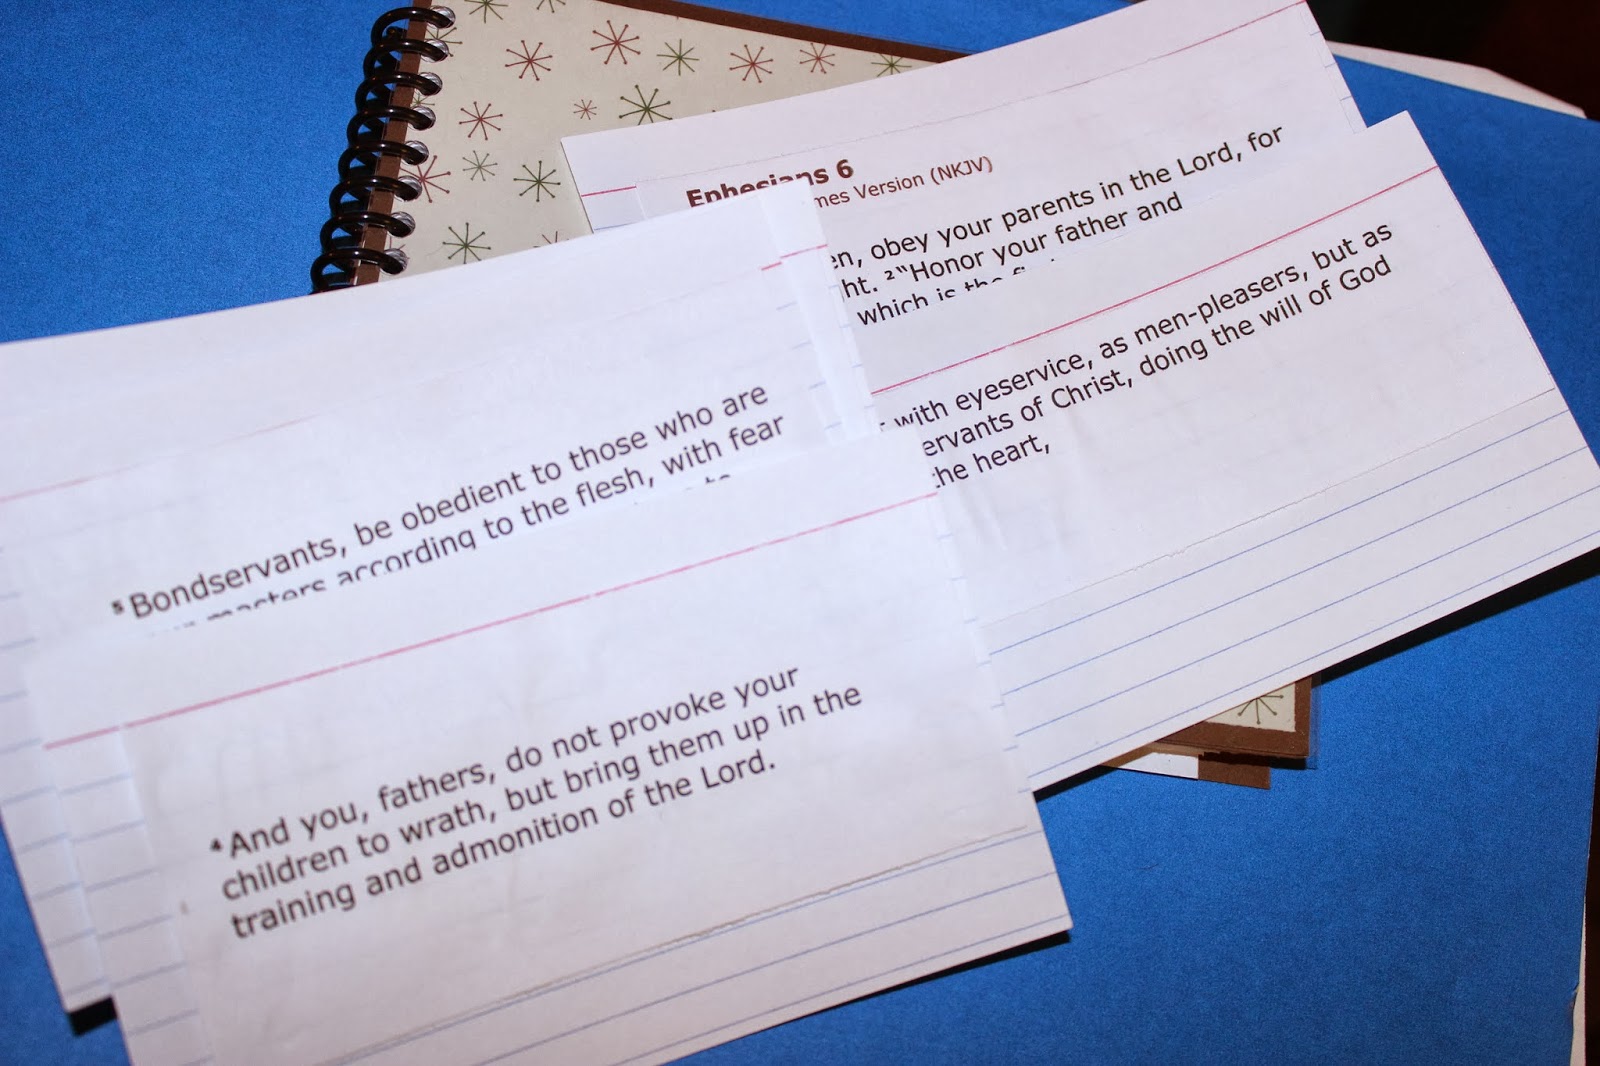 Ephesians 6
mes Version (NKJV)
en, obey your parents in the Lord, for
ht. ²“Honor your father and
which is the
with eyeservice, as men-pleasers, but as
ervants of Christ, doing the will of God
the heart,
⁵Bondservants, be obedient to those who are
masters according to the flesh, with fear
to
⁴And you, fathers, do not provoke your
children to wrath, but bring them up in the
training and admonition of the Lord.